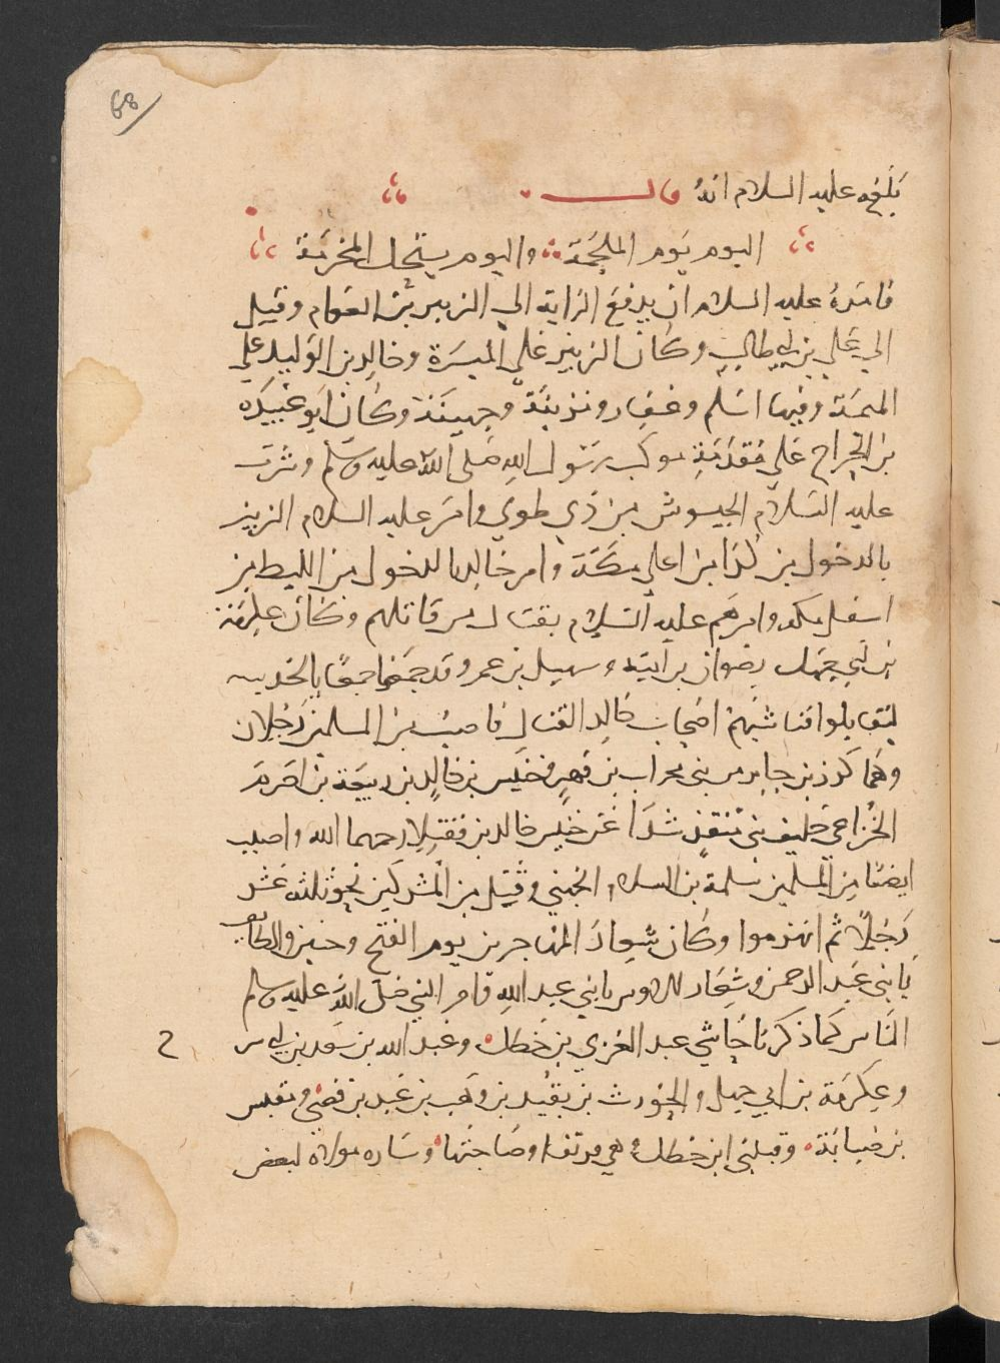 68
بلغه عليه السلام انه قال
اليوم يوم الملحمة واليوم يستحل المحرمة
فامره عليه السلام ان يدفع الراية الي الزبير بن العوام وقيل
الي علي بن ابي طالب وكان الزبير علي الميسرة وخالد بن الوليد علي
الميمنة وفيها اسلم وغفار ومزينة وجهينة وكان ابو عبيدة
بن الجراح علي مقدمة موكب رسول الله صلى الله عليه وسلم وسرب
عليه السلام الجيوش من ذي طوي وامر عليه السلام الزبير
بالدخول من كدا من اعلي مكة وامر خالدا بالدخول من الليط من
اسفل مكه وامرهم عليه السلام بقتال من قاتلهم وكان عكرمة
بن ابي جهل وصفوان بن امية وسهيل بن عمرو قد جمعوا جمعا بالخندمه
ليقاتلوا فناشبهم اصحاب خالد القتال فاصيب من المسلمين رجلان
وهما كرز بن جابر من بني محارب بن فهر وخنيس بن خالد بن ربيعة بن اصرم
الخزاعي حليف بني منقذ شذا عن خيل خالد بن فقتلا رحمهما الله واصيب
ايضا من المسلمين سلمة بن الميلاء الجهني وقتل من المشركين نحو ثلثه عشر
رجلا ثم انهزموا وكان شعار المهاجرين يوم الفتح وحنين والطائف
يا بني عبد الرحمن وشعار الاوس يا بني عبد الله وامر النبي صلى الله عليه وسلم
الناس كما ذكرنا حاشي عبد العزي بن خطل وعبد الله بن سعد بن ابي سر
ح
وعكرمة بن ابي جهل والحويرث بن نقيد بن وهب بن عبد بن قصي ومقيس
بن صبابة وقينتي ابن خطل وهي فرتنا وصاحبتها وساره مولاة لبعض